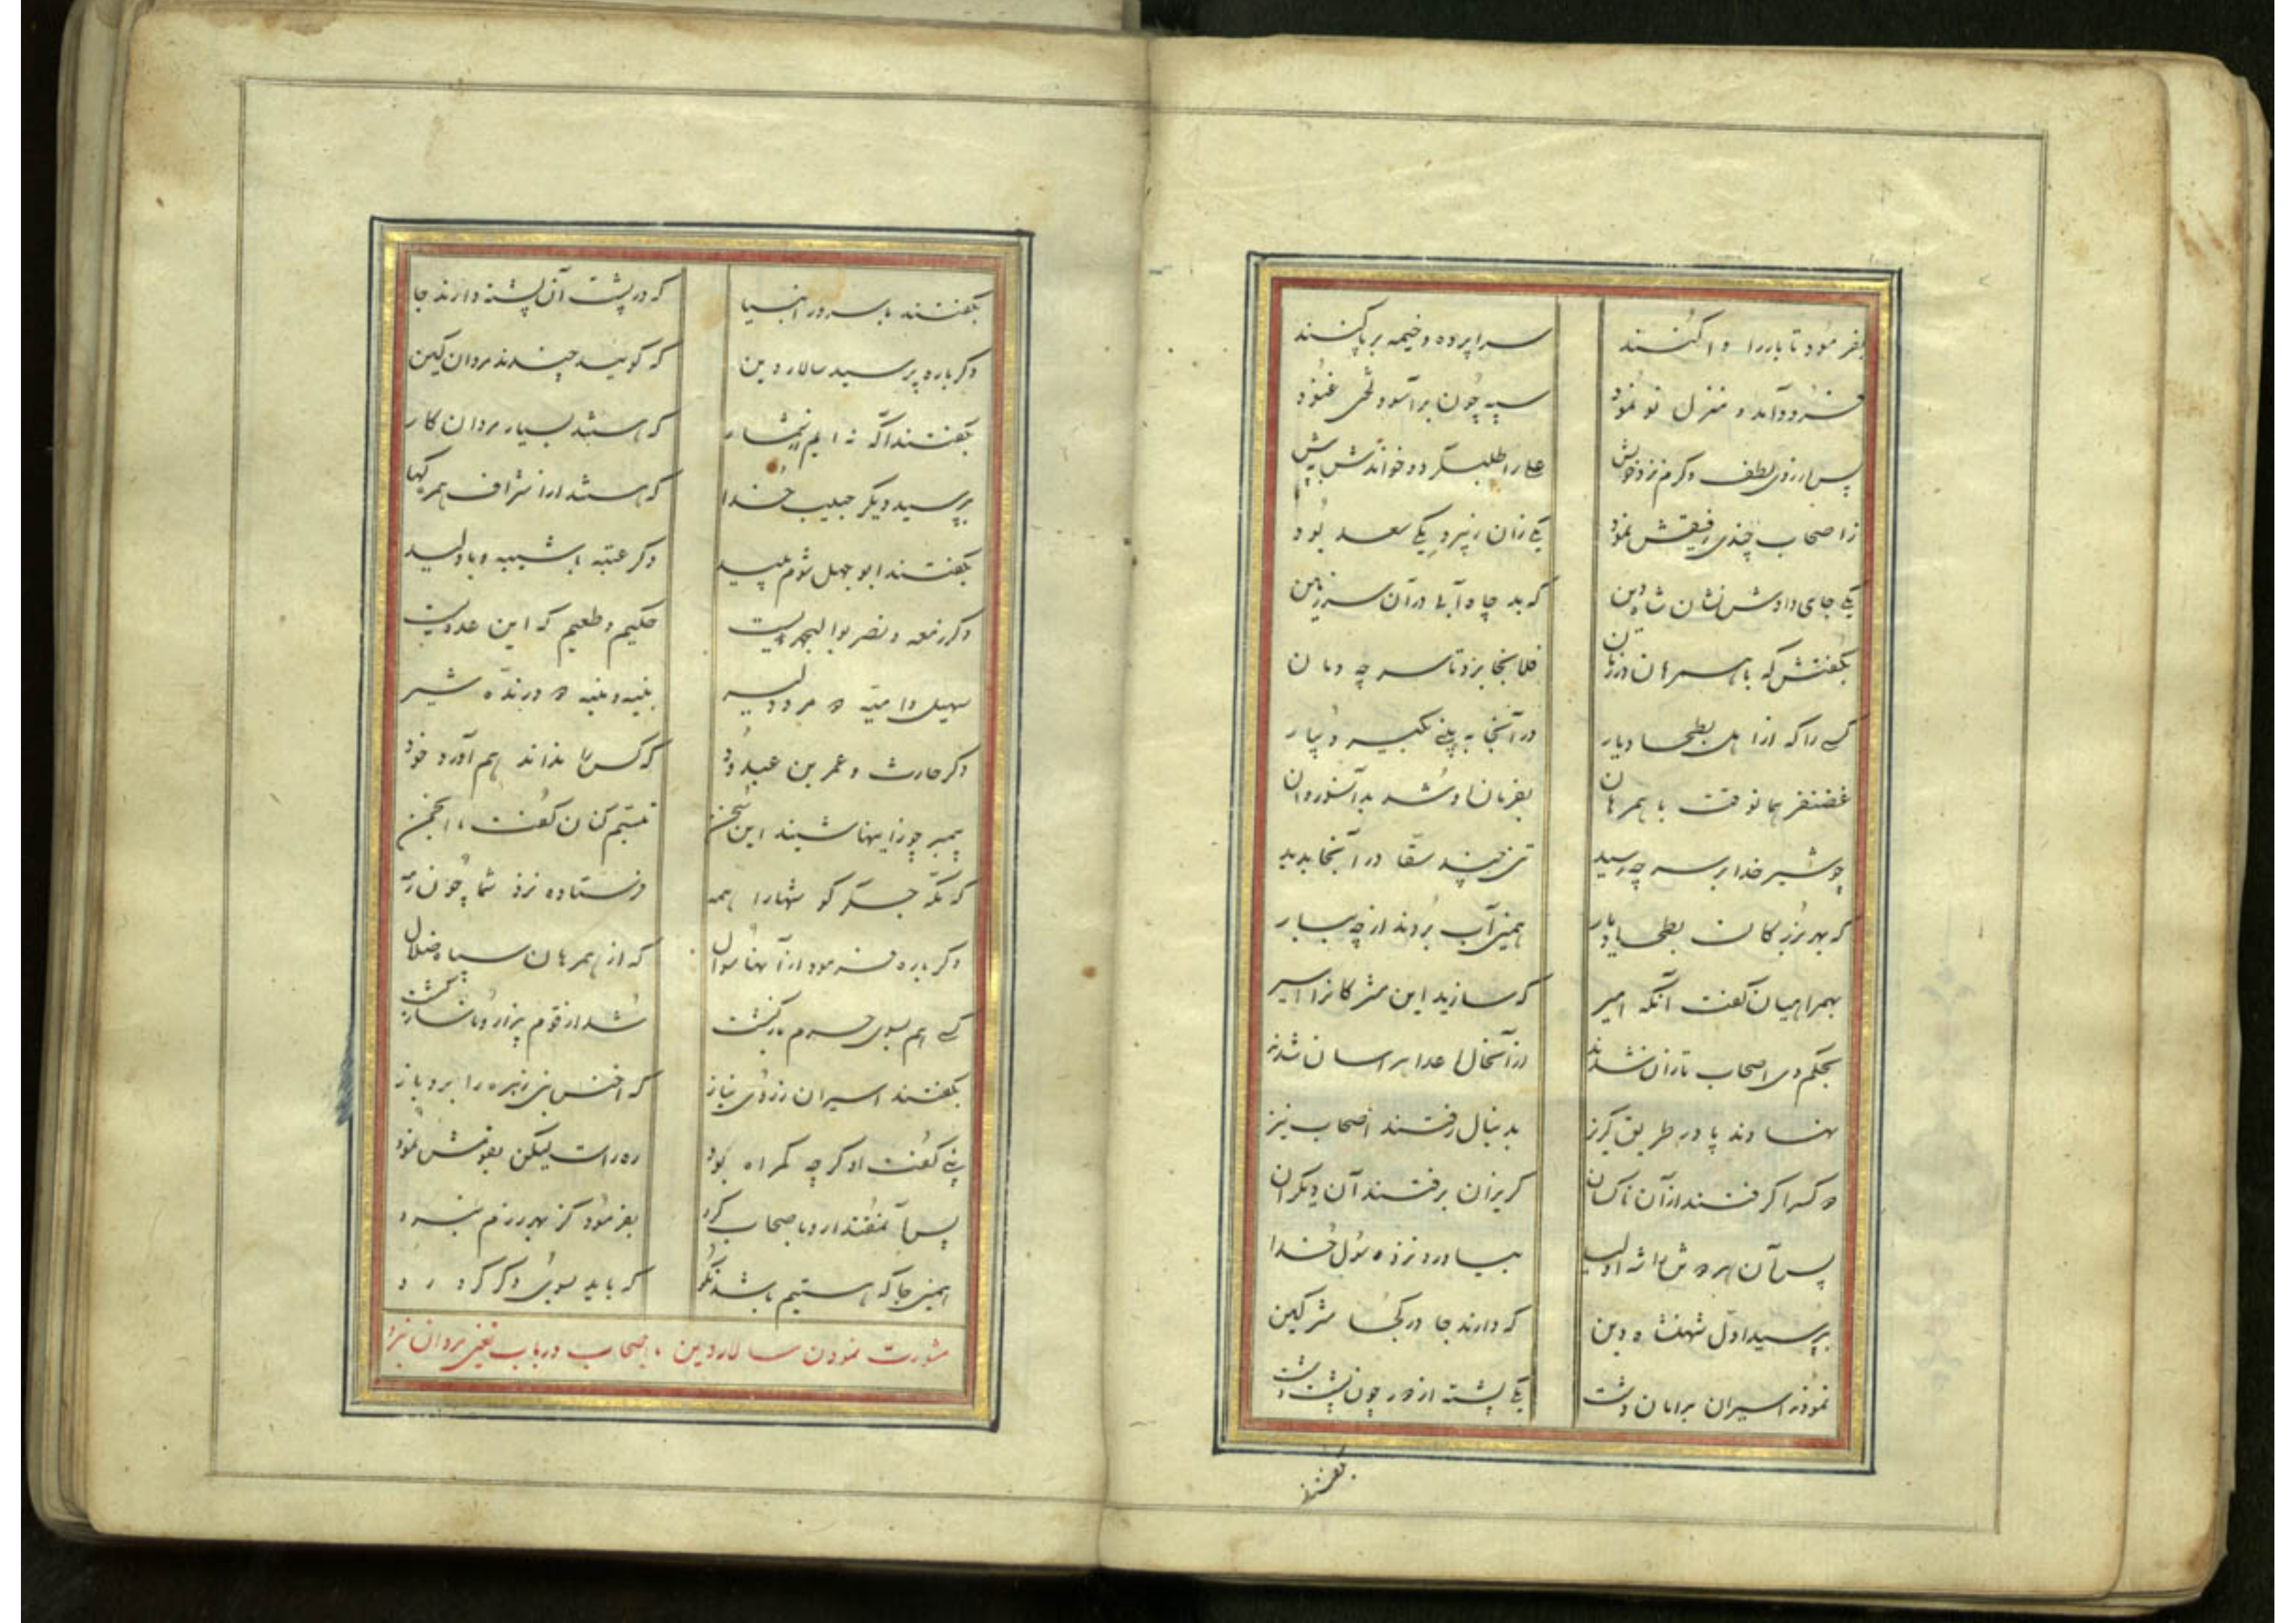 بفرمود تا باررا واکنند سراپرده و خیمه برپا کنند
فرود آمد و منزل نو نمود سپه چون برآسود لختی غنود
پس از روی لطف و کرم نزد خویش علی را طلب کرد و خواندش به پیش
ز اصحاب چندی رفیقش نمود یکی زان زبیر و یکی سعد بود
یکی جای دادش نشان شاه دین که بد چاه آبی در آن سرزمین
بگفتش که با همسران در زمان فلانجا برو تا سر چه دمان
کسی را که از اهل بطحا و یار در آنجا بیابی بگیر و بیار
غضنفر همانوقت با همرهان بفرمان او شد بدانسو روان
چو شیر خدا بر سر چه رسید تنی چند سقا در آنجا بدید
که بهر بزرگان بطحا دیار همی آب بردند از چه ببار
بهمراهیان گفت آنگه امیر که سازید این مشرکانرا اسیر
بحکم وی اصحاب تازان شدند از آنحال اعدا هراسان شدند
نهادند پا در طریق گریز بدنبال رفتند اصحاب نیز
دو کس را گرفتند از آن ناکسان گریزان برفتند آن دیگران
پس آن هر دو تن را شه اولیا بیاورد نزد رسول خدا
بپرسید اول شهنشاه دین که دارند جا در کجا مشرکین
نمودند اسیران برامان دشت یکی پشته از دور چون پشت
بگفتند
بگفتند با سرور انبیا که در پشت آن پشته دارند جا
دگرباره پرسید سالار دین که گویید چندند مردان کین
بگفتند آگه نه ایم از شمار که هستند بسیار مردان کار
بپرسید دیگر حبیب خدا که هستند از اشراف همره کیها
بگفتند ابوجهل شوم پلید دگر عتبه با شیبه و با ولید
دگر زمعه و نضر بوالبختریست حکیم و طعیم که این عدویست
سهیل و امیّه دو مرد دلیر بنیه و منبه دو درنده شیر
دگر حارث و عمر بن عبدود که کس را نداند هم آورد خود
پیمبر چو زاینها شنید این سخن تبسم کنان گفت با انجمن
که مکّه جگرگوشهارا همه فرستاده نزد شما چون رمه
دگرباره فرمود از آنها سوال که از همرهان سپاه ضلال
کسی هم بسوی حرم بازگشت شد از قوم بیزار و
بگفتند اسیران ز روی نیاز که اخنس بنی زهره را برد باز
نبی گفت او گرچه گمراه بود ره راست لیکن بقومش نمود
پس آنگه رو باصحاب کرد بفرمود کز بهر رزم نبرد
همین جا که هستیم باشد نکو که باید بسوی دگر کرد رو
مشورت نمودن سالار دین با اصحاب در باب تعیین میدان نبرد